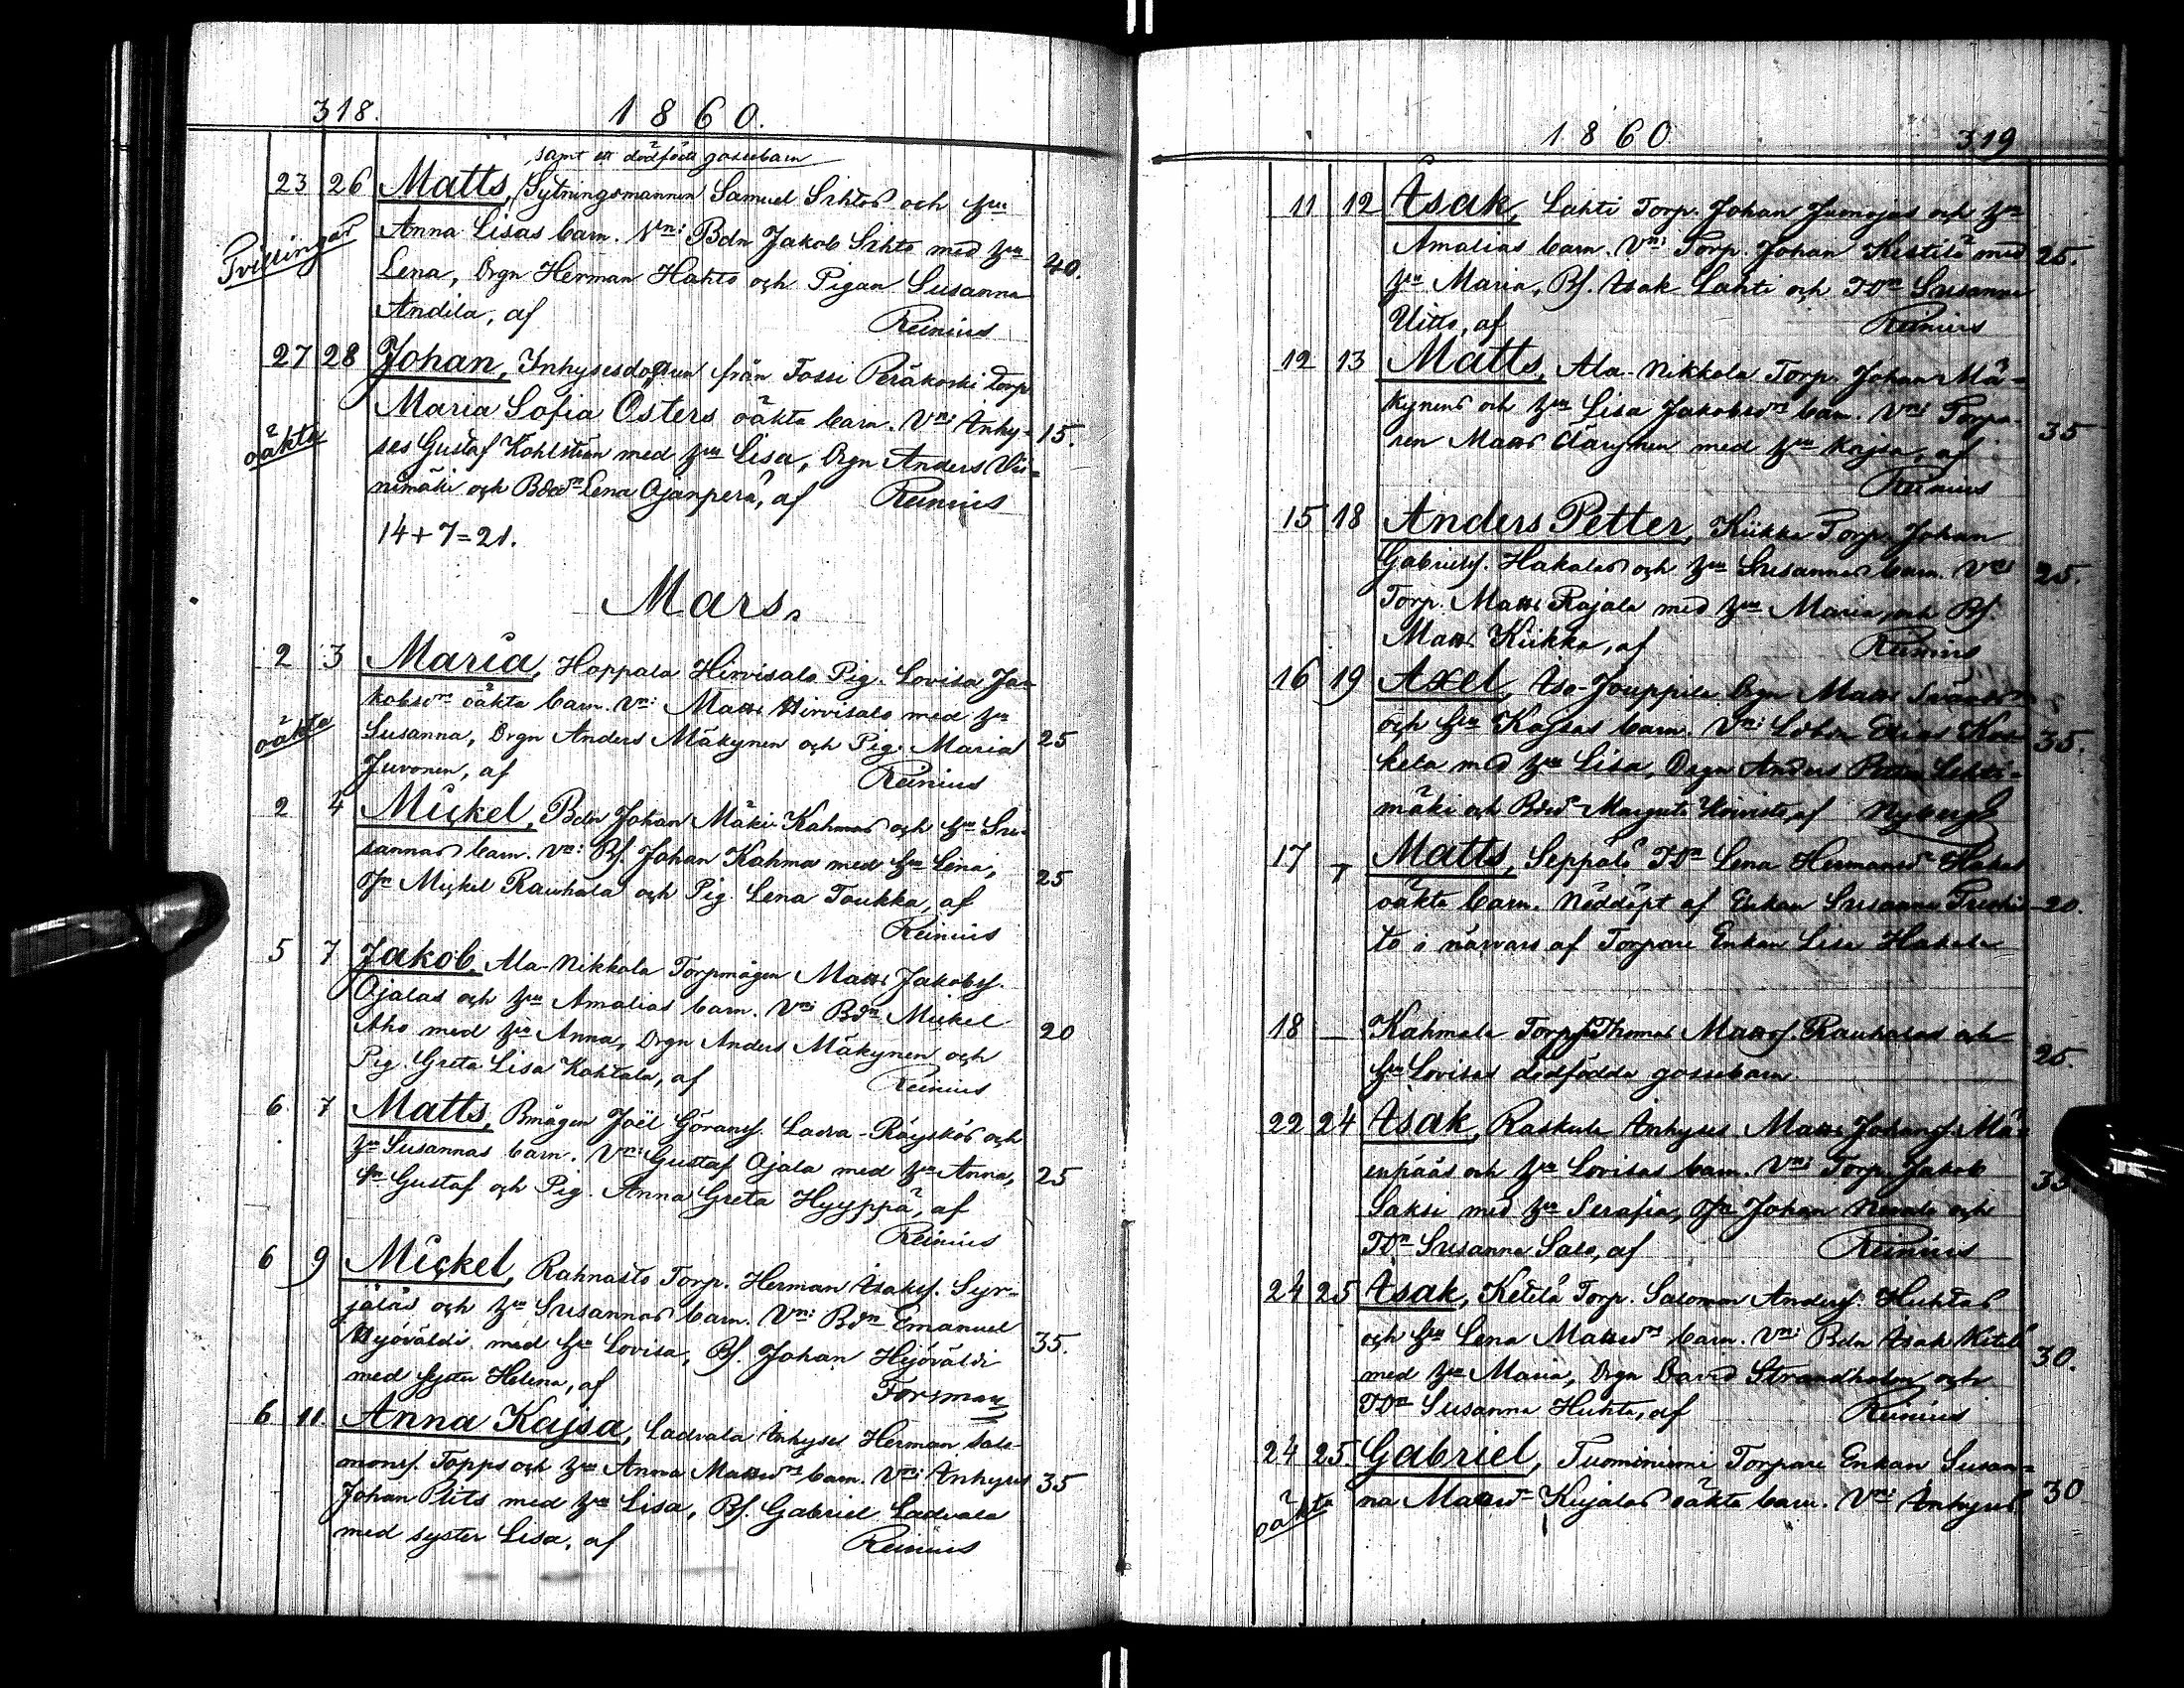 318. 1860.
samt ett dödfödt gossebarn
23 26 Matts, Sytningsmannen Samuel Sihtos och hu
Tvillingar Anna Lisas barn. Vn: Bdn Jakob Sihto med hu 40.
Lena, Drgn Herman Hahto och Pigan Susanna
Andila, af Reinius
27 28 Johan, Inhysesdottren från Fossi Peräkoski torp
Maria Sofia Östers oäkta barn. Vn: Inhy- 15.
oäkta ses Gustaf Kohlström med hu Lisa, Drgn Anders Vii-
nimäki och Bdr Lena Ojanperä, af Reinius
14+7=21.
Mars.
2 3 Maria, Hoppala Hirvisalo Pig. Lovisa Ja-
kobsdr oäkta barn. Vn: Matts Hirvisalo med hu
oäkta Susanna, Drgn Anders Mäkynen och Pig. Maria 25
Juvonen, af Reinius
2 4 Mickel, Bdn Johan Mäki-Kahmas och hu Su-
sannas barn. Vn: Bs. Johan Kahma med hu Lena, 25
Mickel Rauhala och Pig. Lena Toukka, af
Reinius
5 7 Jakob, Ala-Nikkola Torpmågen Matts Jakobs.
Ojalas och hu Amalias barn. Vn: Bdn Mickel
Aho med hu Anna, Drgn Anders Mäkynen och 20
Pig. Greta Lisa Kohtala, af Reinius
6 7 Matts, Bmågen Joël Görans. Ladva-Räyskös och
hu Susannas barn. Vn: Gustaf Ojala med hu Anna, 25
Gustaf och Pig. Anna Greta Hyyppä, af
Reinius
6 9 Mickel, Rahnasto Torp. Herman Isaks. Syr-
jäläs och hu Susannas barn. Vn: Bdn Emanuel
Hyöväldi med hu Lovisa, Bs. Johan Hyöväldi 35.
med syster Helena, af Forsman
6 11. Anna Kajsa, Ladvala Inhyses Herman Salo-
mons. Topps och hu Anna Mattsdr barn. Vn: Inhyses 35
Johan Plits med hu Lisa, Bs. Gabriel Ladvala
med syster Lisa, af Reinius
1860. 319
11 12 Isak, Lahti Torp. Johan Juonojas och hu
Amalias barn. Vn: Torp. Johan Kestilä med 25.
hu Maria, Bs. Isak Lahti och TDr Susanna
Uitto, af Reinius
12 13 Matts, Ala-Nikkola Torp. Johan Mä-
kynens och hu Lisa Jakobsdr barn. Vn: Torpa-
ren Matts med hu Kajsa, af 35
Reinius
15 18 Anders Petter, Kiikka Torp. Johan
Gabriels. Hakalas och hu Susannas barn. Vn: 25.
Torp. Matts Rajala med hu Maria, och Bs.
Matts Kiikka, af Reinius
16 19 Axel, Iso-Jouppila Drgn Matts
och hu Kajsas barn. Vn: Elias Kos- 35.
kela med hu Lisa, Drgn Anders Petter Lehti-
mäki och Bdr Margreta Koivisto, af Nyberg
17 7 Matts, Seppälä TDr Lena Hermansdr Hakas
oäkta barn. Nöddöpt af Enkan Susanna 20.
to i närvaro af Torpare Enkan Lisa Hakala
18 — Kahmala Torps. Thomas Matts. Rauhalas och 25.
hu Lovisas dödfödda gossebarn.
22 24 Isak, Raskula Inhyses Matts Johans. Mä-
enpääs och hu Lovisas barn. Vn: Torp. Jakob 35.
Saksi med hu Serafia, Johan Nevala och
TDr Susanna Salo, af Reinius
24 25 Isak, Ketilä Torp. Salomon Anders. Huhtas
och hu Lena Mattsdr barn. Vn: Bdn Isak Ketilä 30.
med hu Maria, Drgn David Strandholm och
TDr Susanna Huhta, af Reinius
24 25. Gabriel, Tuominiemi Torpare Enkan Susan-
oäkta na Mattsdr Kujalas oäkta barn. Vn: Inhyses 30